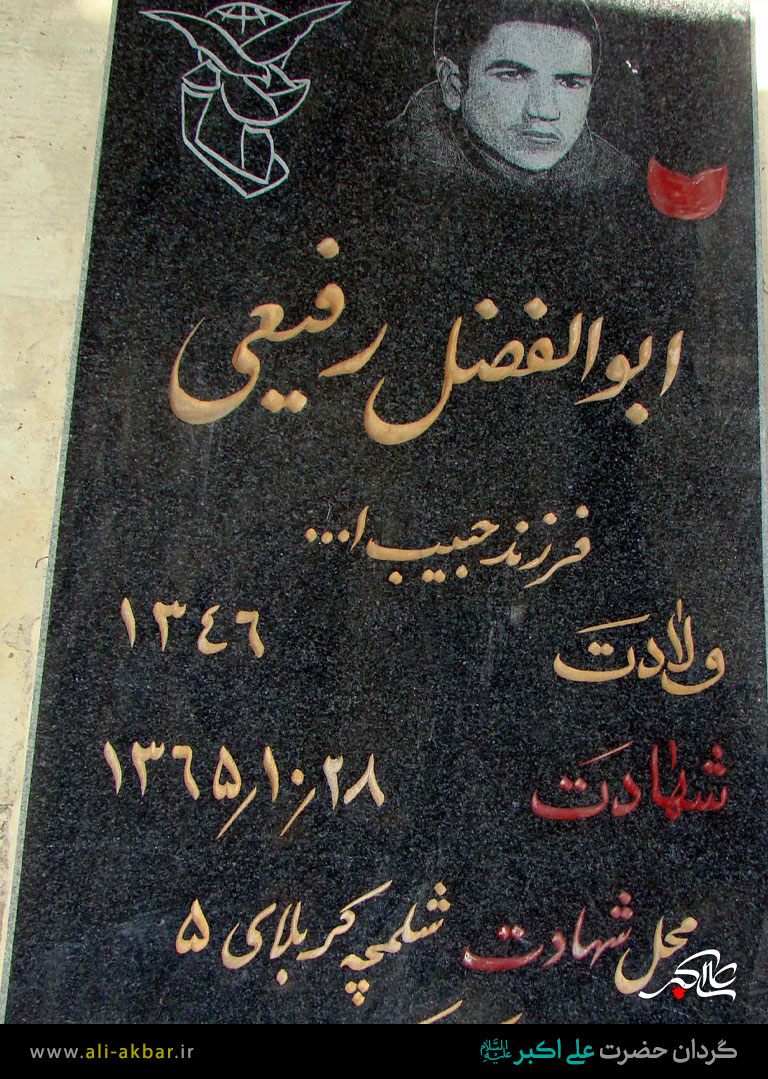 ابوالفضل رفیعی
فرزند حبیب ا...
ولادت ۱۳٤٦
شهادت ۱۳٦۵٫۱۰٫۲۸
محل شهادت شلمچه کربلای ۵
علی اکبر
گردان حضرت علی اکبر علیه السلام
www.ali-akbar.ir